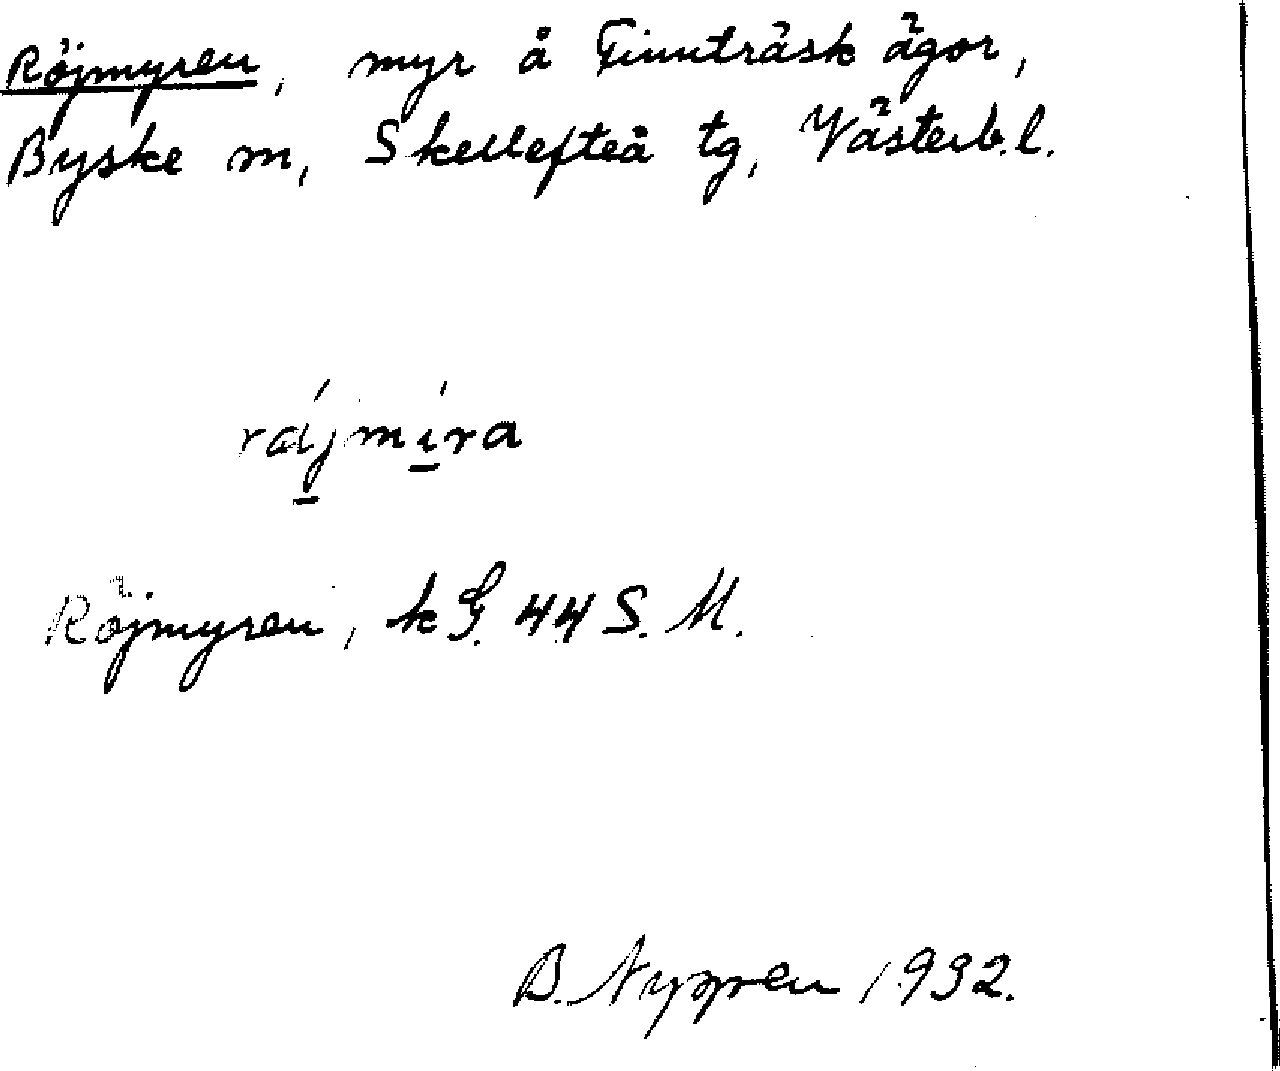 Röjmyren, myr å Finnträsk ägor,
Byske sn, Skellefteå tg, Västerb.l.
räjmira
Röjmyren, k G. 44 S. M.
B. 1932.